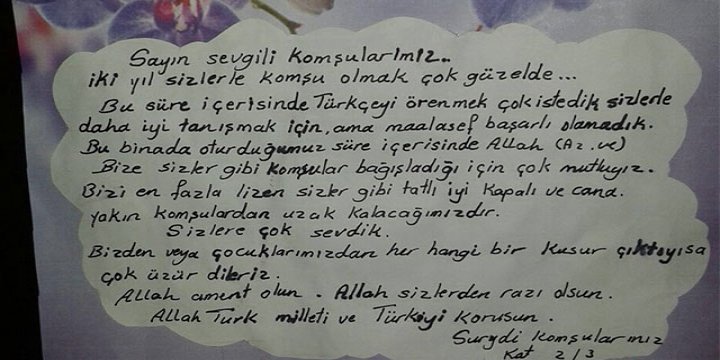 Sayın sevgili komşularımız..
iki yıl sizlerle komşu olmak çok güzelde...
Bu süre içerisinde Türkçeyi örenmek çok istedik sizlerle
daha iyi tanışmak için, ama maalasef başarlı olamadık.
Bu binada oturduğumuz süre içerisinde Allah (Az.ve)
Bize sizler gibi komşular bağışladığı için çok mutluyız.
Bizi en fazla üzen sizler gibi tatlı iyi kapalı ve cana.
yakın komşulardan uzak kalacağımızdır.
Sizlere çok sevdik.
Bizden veya çocuklarımızdan her hangi bir kusur çıktıyısa
çok üzür dileriz.
Allah ament olun . Allah sizlerden razı olsun.
Allah Türk milleti ve Türkiyi korusun .
Surydi komşularımız
Kat 2/3